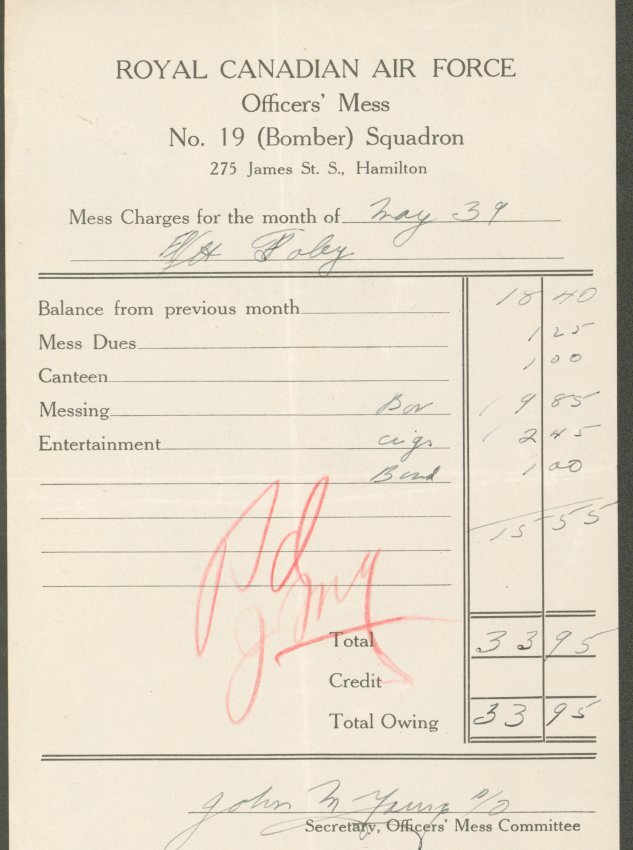 ROYAL CANADIAN AIR FORCE
Officers' Mess
No. 19 (Bomber) Squadron
275 James St. S., Hamilton
Mess Charges for the month of May 39
Foley
Balance from previous month 18 40
Mess Dues 1 25
Canteen 1 00
Messing Bar 9 85
Entertainment cigs 2 45
Band 1 00
15 55
Pd
Total 33 95
Credit
Total Owing 33 95
John M Young
Secretary, Officers' Mess Committee